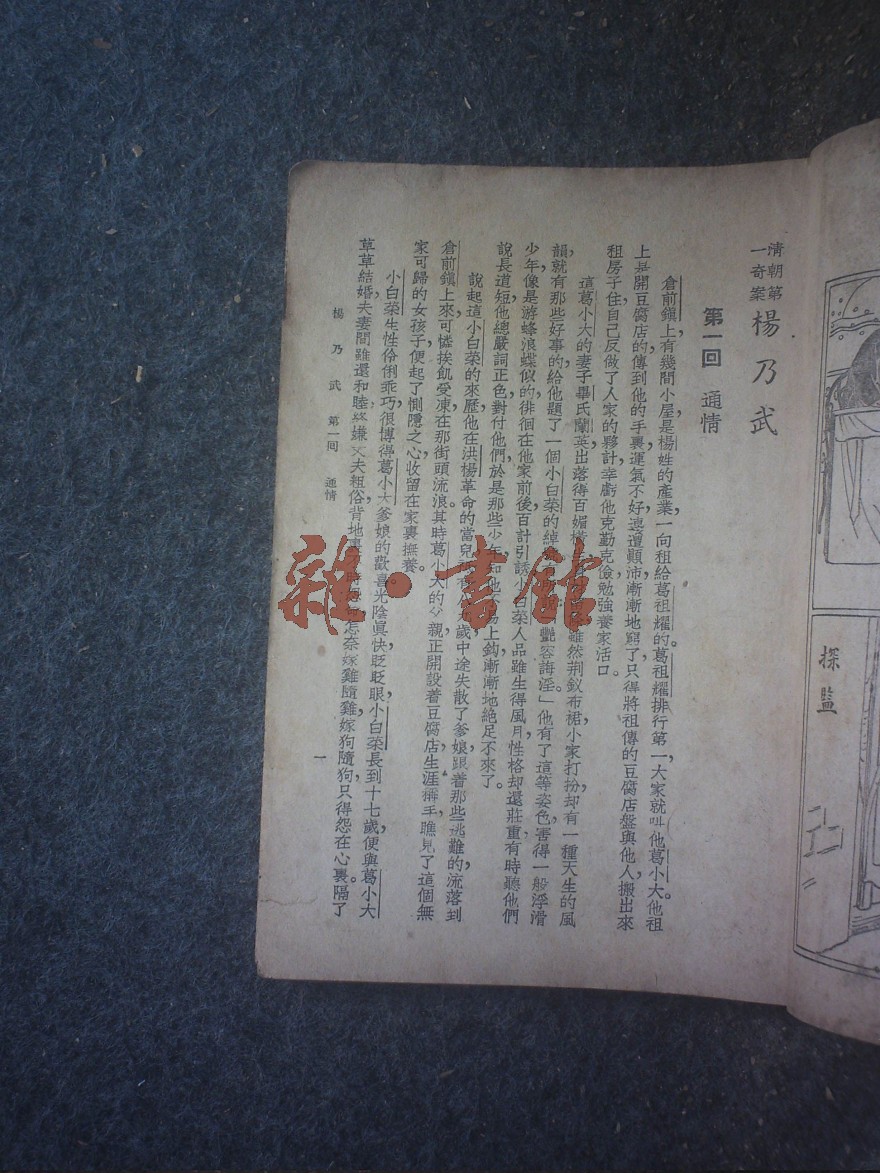 探監
清朝第
一奇案
楊乃武
第一回 通情
倉前鎭上,有幾間小屋,是楊姓的產業,一向租給葛祖耀的。葛祖耀排行第一,大家就叫他葛小大。他祖
上是開豆腐店的,傳到他的手裏,運氣不好,迍邅顚沛,漸漸地窮了,只得將祖傳的豆腐店盤與他人,搬出來
租房子住,自己反做了人家的夥計,幸虧他克勤克儉,勉強養家活口。
這葛小大的妻子畢氏蘭英,出落得百媚 雖然荆釵布裙,小家打扮,却有一種天生的風
韻,就有那些好事的給他題了一個小白菜的綽 艷容誨淫。」他有了這等姿色,害得一般浮滑
少年,像是游蜂浪蝶似的,徘徊在他家前後,百計引誘。小白菜人品雖生得風月,性格却還莊重,有時聽他們
說長道短,他總嚴詞正色,對付他們,於是那些少年,知他不 易上鈎,漸漸地絕足不來了。
說起這小白菜的來歷,他在洪楊革命的當兒, 歲,中途失散了爹娘,跟着那些逃難的,流落到
倉前鎭上來,可憐挨飢受凍,在那街頭流浪。其時葛小大的父親,正開設着豆腐店,生涯 ,瞧見了這個無
家可歸的女孩子,便起了惻隱之心,收留在家裏撫養。
小白菜生性伶俐乖巧,很博得葛小大爹娘的歡喜,光陰眞快,眨眨眼,小白菜長到十七歲,便與葛小大
草草結婚,夫妻間雖還和睦,終嫌丈夫粗俗,背地裏 怎奈嫁雞隨雞,嫁狗隨狗,只得怨在心裏,隔了
楊乃武 第一回 通情
一
雜·書館